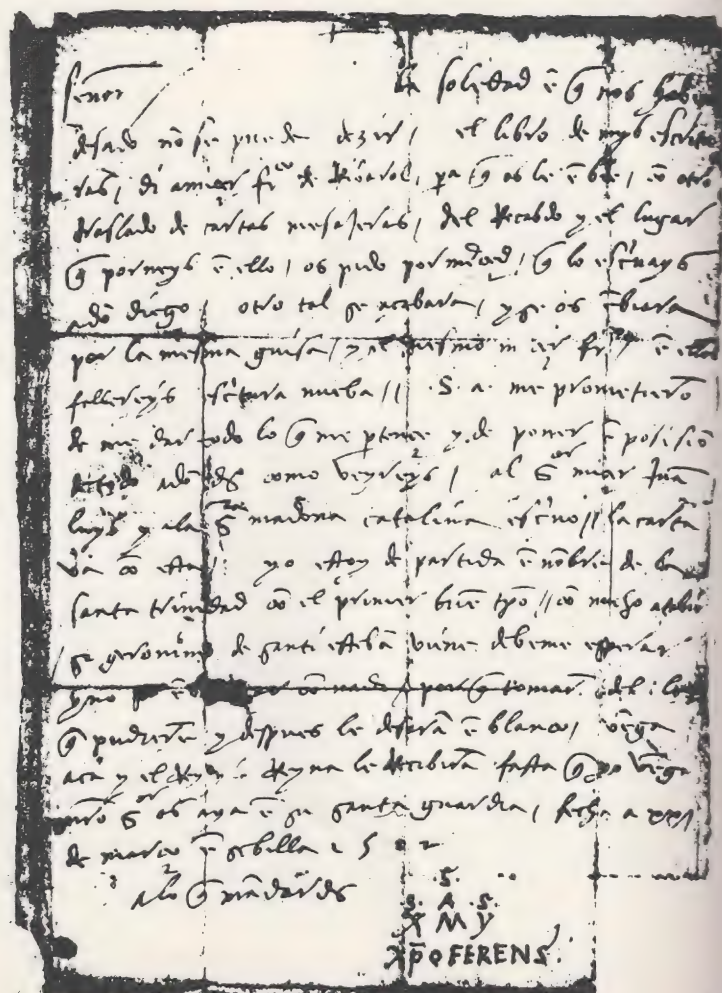 señor la soledad ē q̄ nos habeys
desado nõ se puede dezir / el libro de mys escritu
ras / di a miçer fr̃co de Ribarol / pa q̄ os le ēbie / cõ otro
traslado de cartas mesajeras / del Recabdo y el lugar
q̄ porneys ē ello / os pido por merçed / q̄ lo escrivays
a dõ diego / otro tal se acabara / y se os ēbiara
por la mesma guisa / y el mesmo miçer fr̃co ē ello
fallereys escritura nueba // .S. a. me prometierõ
de me dar todo lo q̄ me pertençe y de poner ē posisiõ
de todo a dõ dg̃o como veyreys / al S̃or miçer Juã
luys y a la S̃ra madona catalina escrivo // la carta
va cõ esta / yo estoy de partida ē nõbre de la
santa trinidad cõ el primer buē tpõ // cõ mucho atabio
sy geronimo de santi estebã viene debeme esperar
y no nada por q̄ tomarã del lo
q̄ pudierē y despues le desarã ē blanco / vēga
acá y el Rey y la Reyna le Recibirã fasta q̄ yo vēga
nr̃o S̃or os aya ē su santa guardia / fecha a xxi
de março ē sebilla 1502
a lo q̄ mãdardes
.S.
.S. A .S.
X M Y
Xp̄o FERENS.